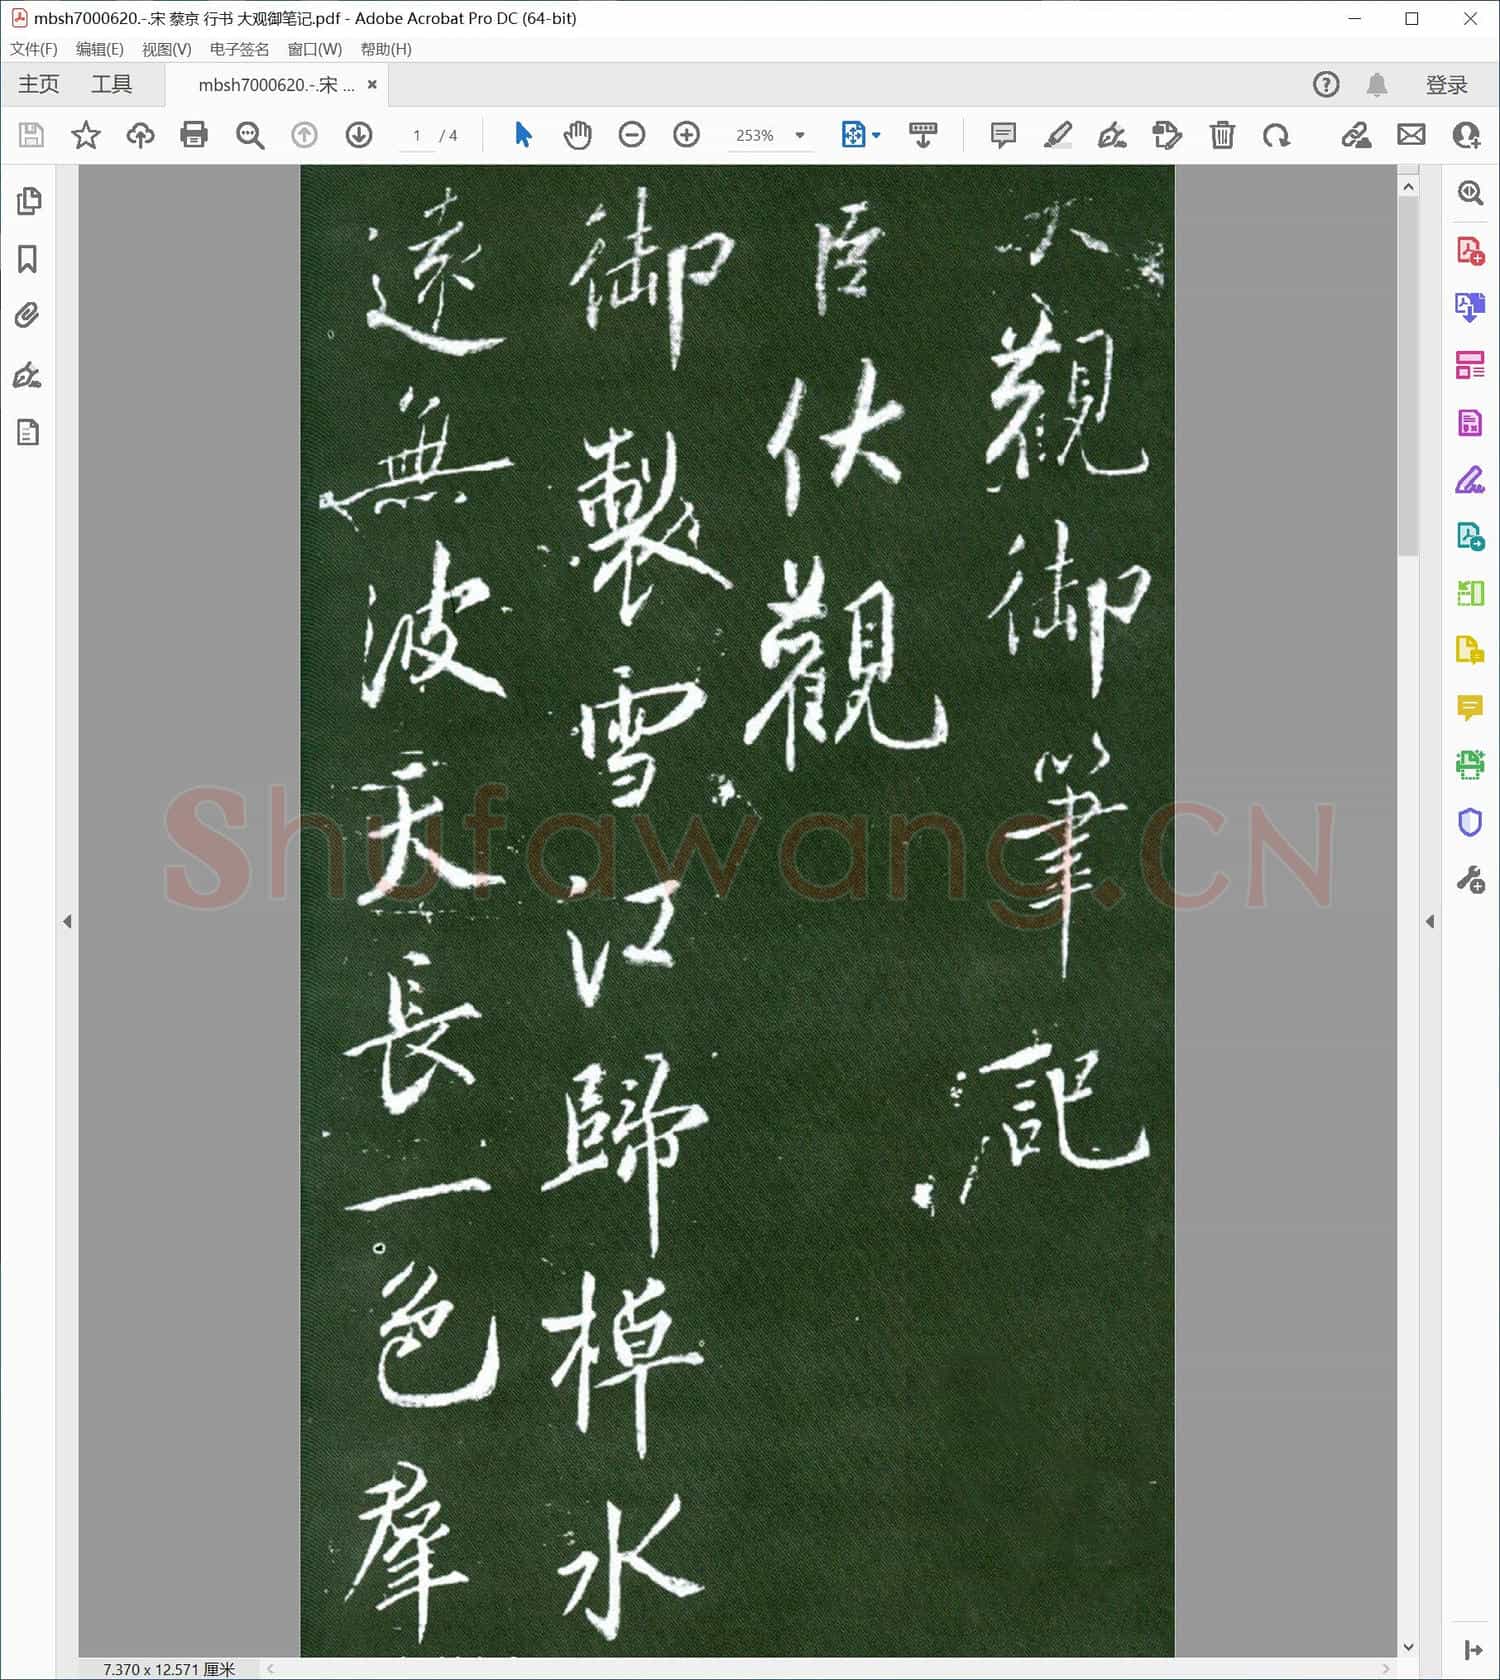 mbsh7000620.-.宋 蔡京 行书 大观御笔记.pdf - Adobe Acrobat Pro DC (64-bit)
文件(F) 编辑(E) 视图(V) 电子签名 窗口(W) 帮助(H)
主页 工具 mbsh7000620.-.宋 ... 登录
1 / 4 253%
大觀御筆記
臣伏觀
御製雪江歸棹水
遠無波天長一色羣
Shufawang.CN
7.370 x 12.571 厘米